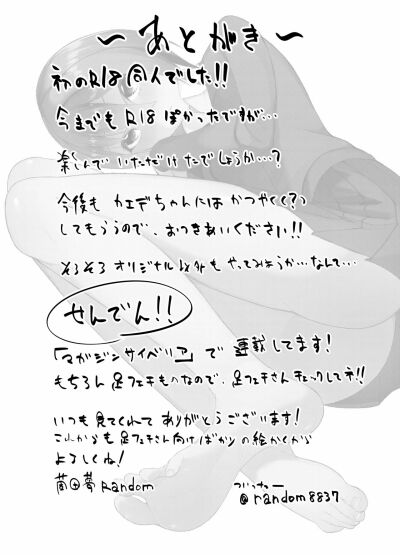 ～あとがき～
初のR18同人でした!!
今までも R18 ぽかったですが…
楽しんで いただけたでしょうか…?
今後も カエデちゃんには かつやく(?)
してもらうので、おつきあいください!!
そろそろ オリジナル以外も やってみようか…なんて…
せんでん!!
「マガジンサイベリア」で 連載してます!
もちろん 足フェチものなので、足フェチさんチェックしてネ!!
いつも見てくれて ありがとうございます!
これからも足フェチさん向けばかりの絵かくから
よろしくね!
蒟田夢 Random
ついったー
@random8837